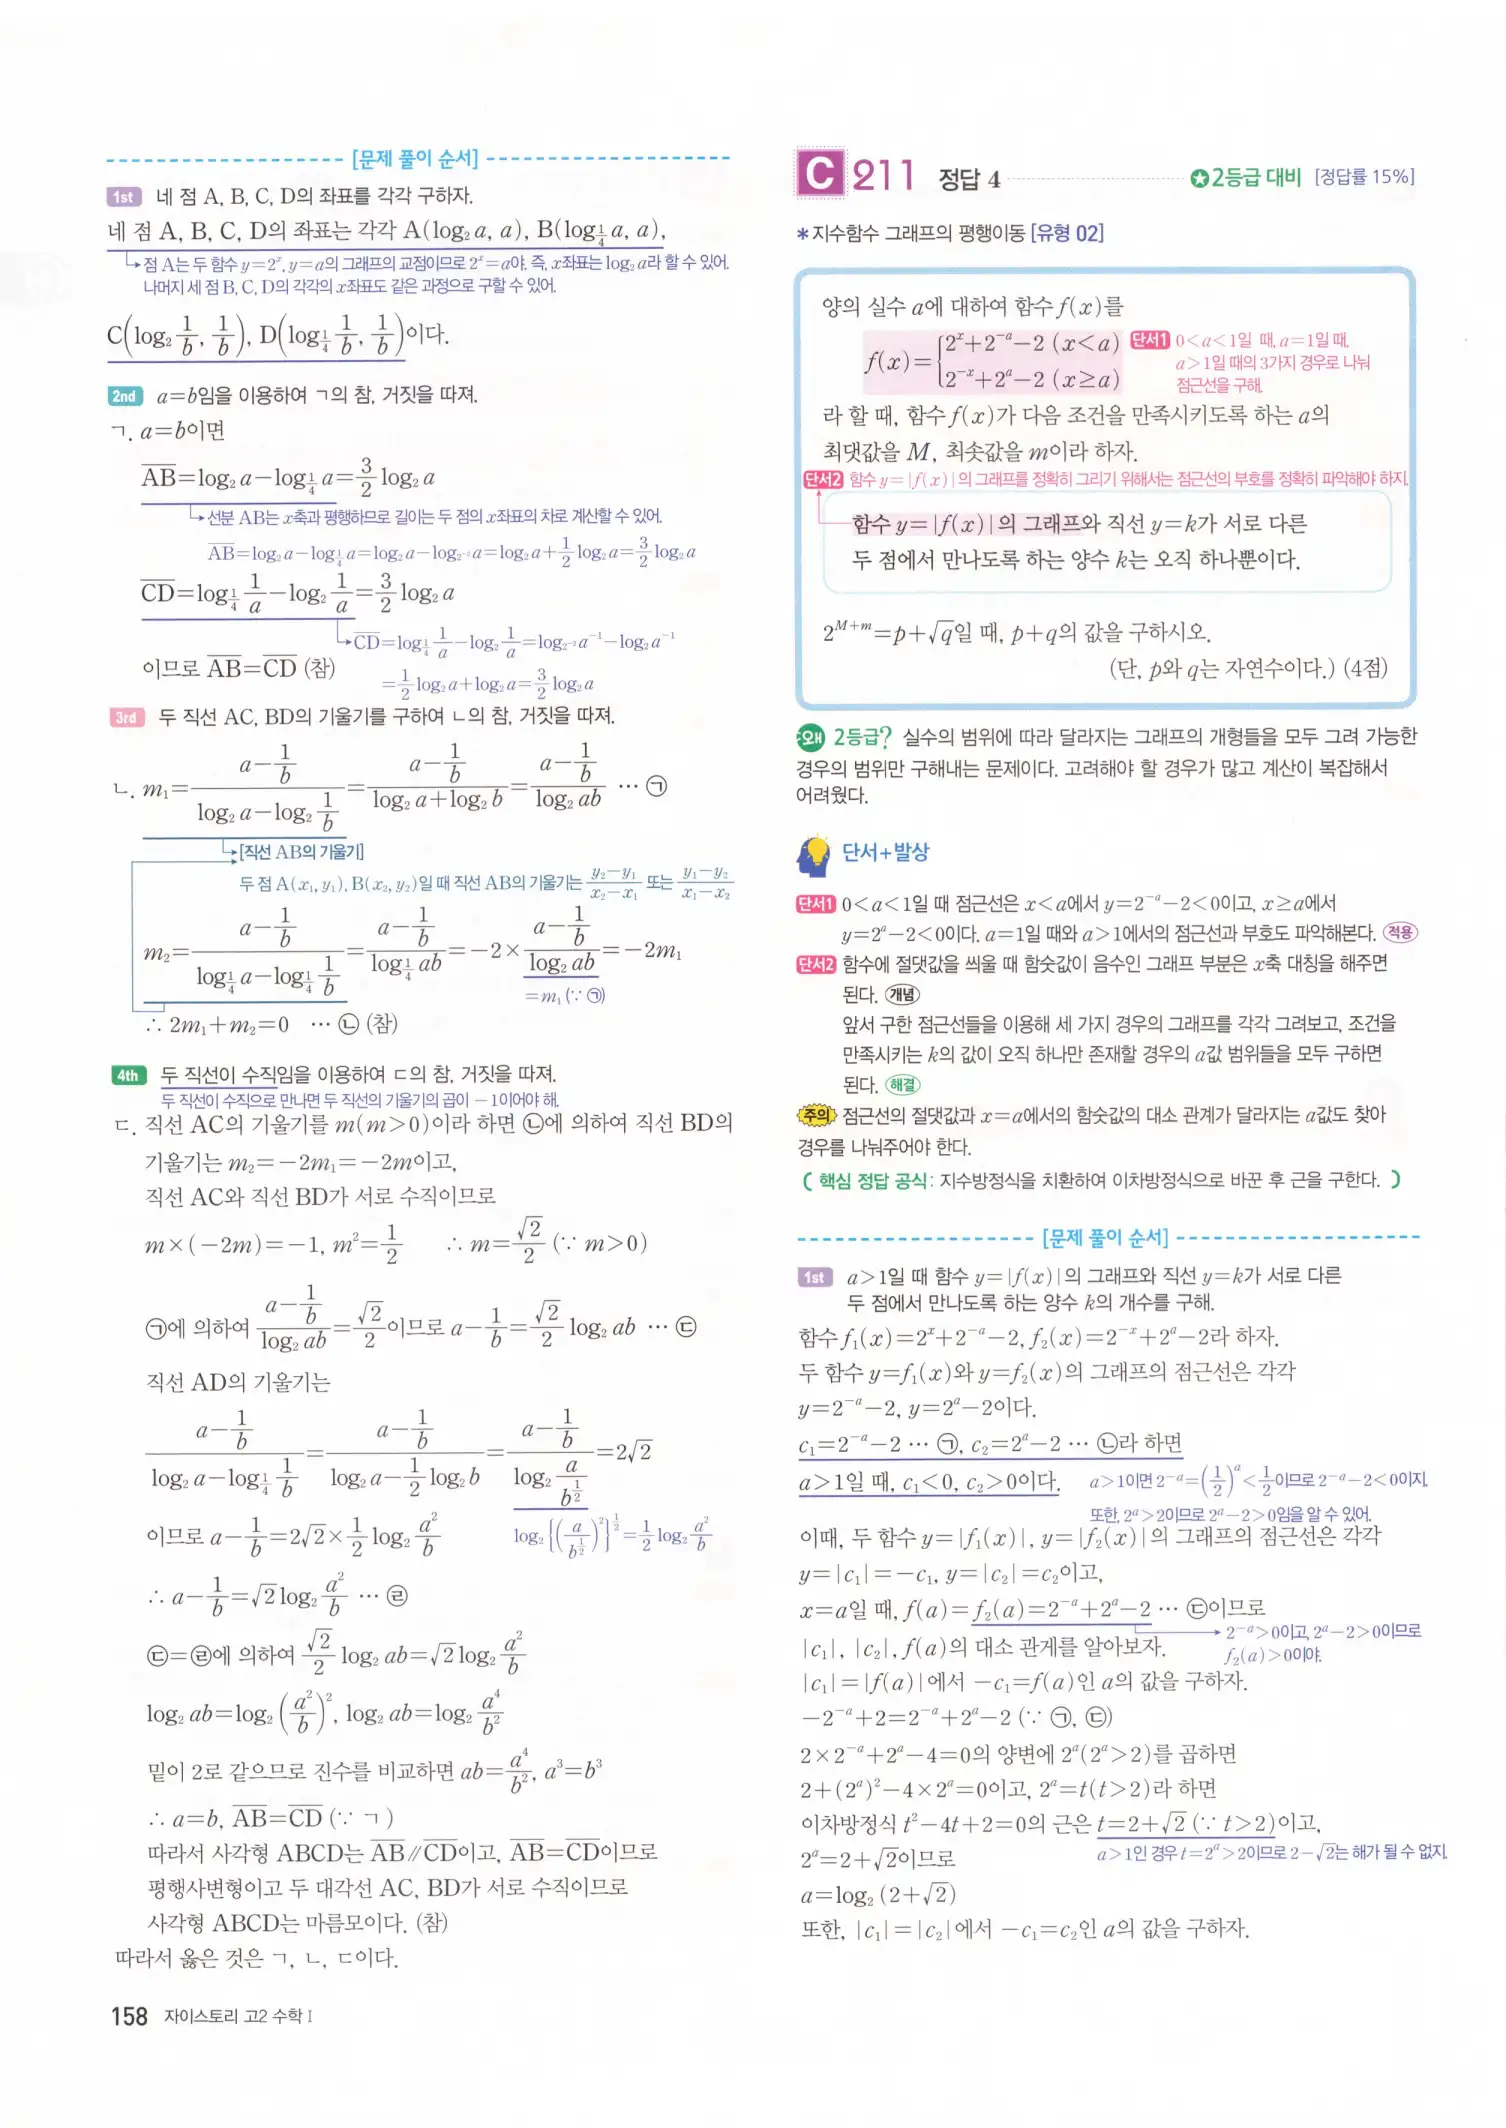 [문제 풀이 순서]
1st 네 점 A, B, C, D의 좌표를 각각 구하자.
네 점 A, B, C, D의 좌표는 각각 A(log₂ a, a), B(log_{1/4} a, a),
점 A는 두 함수 y=2^x, y=a의 그래프의 교점이므로 2^x=a야. 즉, x좌표는 log₂ a라 할 수 있어.
나머지 세 점 B, C, D의 각각의 x좌표도 같은 과정으로 구할 수 있어.
C(log₂ 1/b, 1/b), D(log_{1/4} 1/b, 1/b)이다.
2nd a=b임을 이용하여 ㄱ의 참, 거짓을 따져.
ㄱ. a=b이면
AB=log₂ a-log_{1/4} a=3/2 log₂ a
선분 AB는 x축과 평행하므로 길이는 두 점의 x좌표의 차로 계산할 수 있어.
AB=log₂ a-log_{1/4} a=log₂ a-log_{2^{-2}} a=log₂ a+1/2 log₂ a=3/2 log₂ a
CD=log_{1/4} 1/a-log₂ 1/a=3/2 log₂ a
CD=log_{1/4} 1/a-log₂ 1/a=log_{2^{-2}} a^{-1}-log₂ a^{-1}
=1/2 log₂ a+log₂ a=3/2 log₂ a
이므로 AB=CD (참)
3rd 두 직선 AC, BD의 기울기를 구하여 ㄴ의 참, 거짓을 따져.
ㄴ. m₁=(a-1/b)/(log₂ a-log₂ 1/b)=(a-1/b)/(log₂ a+log₂ b)=(a-1/b)/(log₂ ab) … ㉠
[직선 AB의 기울기]
두 점 A(x₁, y₁), B(x₂, y₂)일 때 직선 AB의 기울기는 (y₂-y₁)/(x₂-x₁) 또는 (y₁-y₂)/(x₁-x₂)
m₂=(a-1/b)/(log_{1/4} a-log_{1/4} 1/b)=(a-1/b)/(log_{1/4} ab)=-2×(a-1/b)/(log₂ ab)=-2m₁
=m₁ (∵ ㉠)
∴ 2m₁+m₂=0 … ㉡ (참)
4th 두 직선이 수직임을 이용하여 ㄷ의 참, 거짓을 따져.
두 직선이 수직으로 만나면 두 직선의 기울기의 곱이 -1이어야 해.
ㄷ. 직선 AC의 기울기를 m(m>0)이라 하면 ㉡에 의하여 직선 BD의
기울기는 m₂=-2m₁=-2m이고,
직선 AC와 직선 BD가 서로 수직이므로
m×(-2m)=-1, m²=1/2 ∴ m=√2/2 (∵ m>0)
㉠에 의하여 (a-1/b)/(log₂ ab)=√2/2이므로 a-1/b=√2/2 log₂ ab … ㉢
직선 AD의 기울기는
(a-1/b)/(log₂ a-log_{1/4} 1/b)=(a-1/b)/(log₂ a-1/2 log₂ b)=(a-1/b)/(log₂ a/b^{1/2})=2√2
이므로 a-1/b=2√2×1/2 log₂ a²/b
log₂ {(a/b^{1/2})²}^{1/2}=1/2 log₂ a²/b
∴ a-1/b=√2 log₂ a²/b … ㉣
㉢=㉣에 의하여 √2/2 log₂ ab=√2 log₂ a²/b
log₂ ab=log₂ (a²/b)², log₂ ab=log₂ a⁴/b²
밑이 2로 같으므로 진수를 비교하면 ab=a⁴/b², a³=b³
∴ a=b, AB=CD (∵ ㄱ)
따라서 사각형 ABCD는 AB∥CD이고, AB=CD이므로
평행사변형이고 두 대각선 AC, BD가 서로 수직이므로
사각형 ABCD는 마름모이다. (참)
따라서 옳은 것은 ㄱ, ㄴ, ㄷ이다.
158 자이스토리 고2 수학 I
C 211 정답 4 ✪2등급 대비 [정답률 15%]
*지수함수 그래프의 평행이동 [유형 02]
양의 실수 a에 대하여 함수 f(x)를
f(x)={2^x+2^{-a}-2 (x<a)
2^{-x}+2^a-2 (x≥a)
단서1 0<a<1일 때, a=1일 때,
a>1일 때의 3가지 경우로 나눠
점근선을 구해.
라 할 때, 함수 f(x)가 다음 조건을 만족시키도록 하는 a의
최댓값을 M, 최솟값을 m이라 하자.
단서2 함수 y=|f(x)|의 그래프를 정확히 그리기 위해서는 점근선의 부호를 정확히 파악해야 하지.
함수 y=|f(x)|의 그래프와 직선 y=k가 서로 다른
두 점에서 만나도록 하는 양수 k는 오직 하나뿐이다.
2^{M+m}=p+√q일 때, p+q의 값을 구하시오.
(단, p와 q는 자연수이다.) (4점)
왜 2등급? 실수의 범위에 따라 달라지는 그래프의 개형들을 모두 그려 가능한
경우의 범위만 구해내는 문제이다. 고려해야 할 경우가 많고 계산이 복잡해서
어려웠다.
단서+발상
단서1 0<a<1일 때 점근선은 x<a에서 y=2^{-a}-2<0이고, x≥a에서
y=2^a-2<0이다. a=1일 때와 a>1에서의 점근선과 부호도 파악해본다. 적용
단서2 함수에 절댓값을 씌울 때 함숫값이 음수인 그래프 부분은 x축 대칭을 해주면
된다. 개념
앞서 구한 점근선들을 이용해 세 가지 경우의 그래프를 각각 그려보고, 조건을
만족시키는 k의 값이 오직 하나만 존재할 경우의 a값 범위들을 모두 구하면
된다. 해결
주의 점근선의 절댓값과 x=a에서의 함숫값의 대소 관계가 달라지는 a값도 찾아
경우를 나눠주어야 한다.
( 핵심 정답 공식: 지수방정식을 치환하여 이차방정식으로 바꾼 후 근을 구한다. )
[문제 풀이 순서]
1st a>1일 때 함수 y=|f(x)|의 그래프와 직선 y=k가 서로 다른
두 점에서 만나도록 하는 양수 k의 개수를 구해.
함수 f₁(x)=2^x+2^{-a}-2, f₂(x)=2^{-x}+2^a-2라 하자.
두 함수 y=f₁(x)와 y=f₂(x)의 그래프의 점근선은 각각
y=2^{-a}-2, y=2^a-2이다.
c₁=2^{-a}-2 … ㉠, c₂=2^a-2 … ㉡라 하면
a>1일 때, c₁<0, c₂>0이다.
a>1이면 2^{-a}=(1/2)^a<1/2이므로 2^{-a}-2<0이지.
또한, 2^a>2이므로 2^a-2>0임을 알 수 있어.
이때, 두 함수 y=|f₁(x)|, y=|f₂(x)|의 그래프의 점근선은 각각
y=|c₁|=-c₁, y=|c₂|=c₂이고,
x=a일 때, f(a)=f₂(a)=2^{-a}+2^a-2 … ㉢이므로
2^{-a}>0이고, 2^a-2>0이므로
f₂(a)>0이야.
|c₁|, |c₂|, f(a)의 대소 관계를 알아보자.
|c₁|=|f(a)|에서 -c₁=f(a)인 a의 값을 구하자.
-2^{-a}+2=2^{-a}+2^a-2 (∵ ㉠, ㉢)
2×2^{-a}+2^a-4=0의 양변에 2^a(2^a>2)를 곱하면
2+(2^a)²-4×2^a=0이고, 2^a=t(t>2)라 하면
이차방정식 t²-4t+2=0의 근은 t=2+√2 (∵ t>2)이고,
a>1인 경우 t=2^a>2이므로 2-√2는 해가 될 수 없지.
2^a=2+√2이므로
a=log₂ (2+√2)
또한, |c₁|=|c₂|에서 -c₁=c₂인 a의 값을 구하자.